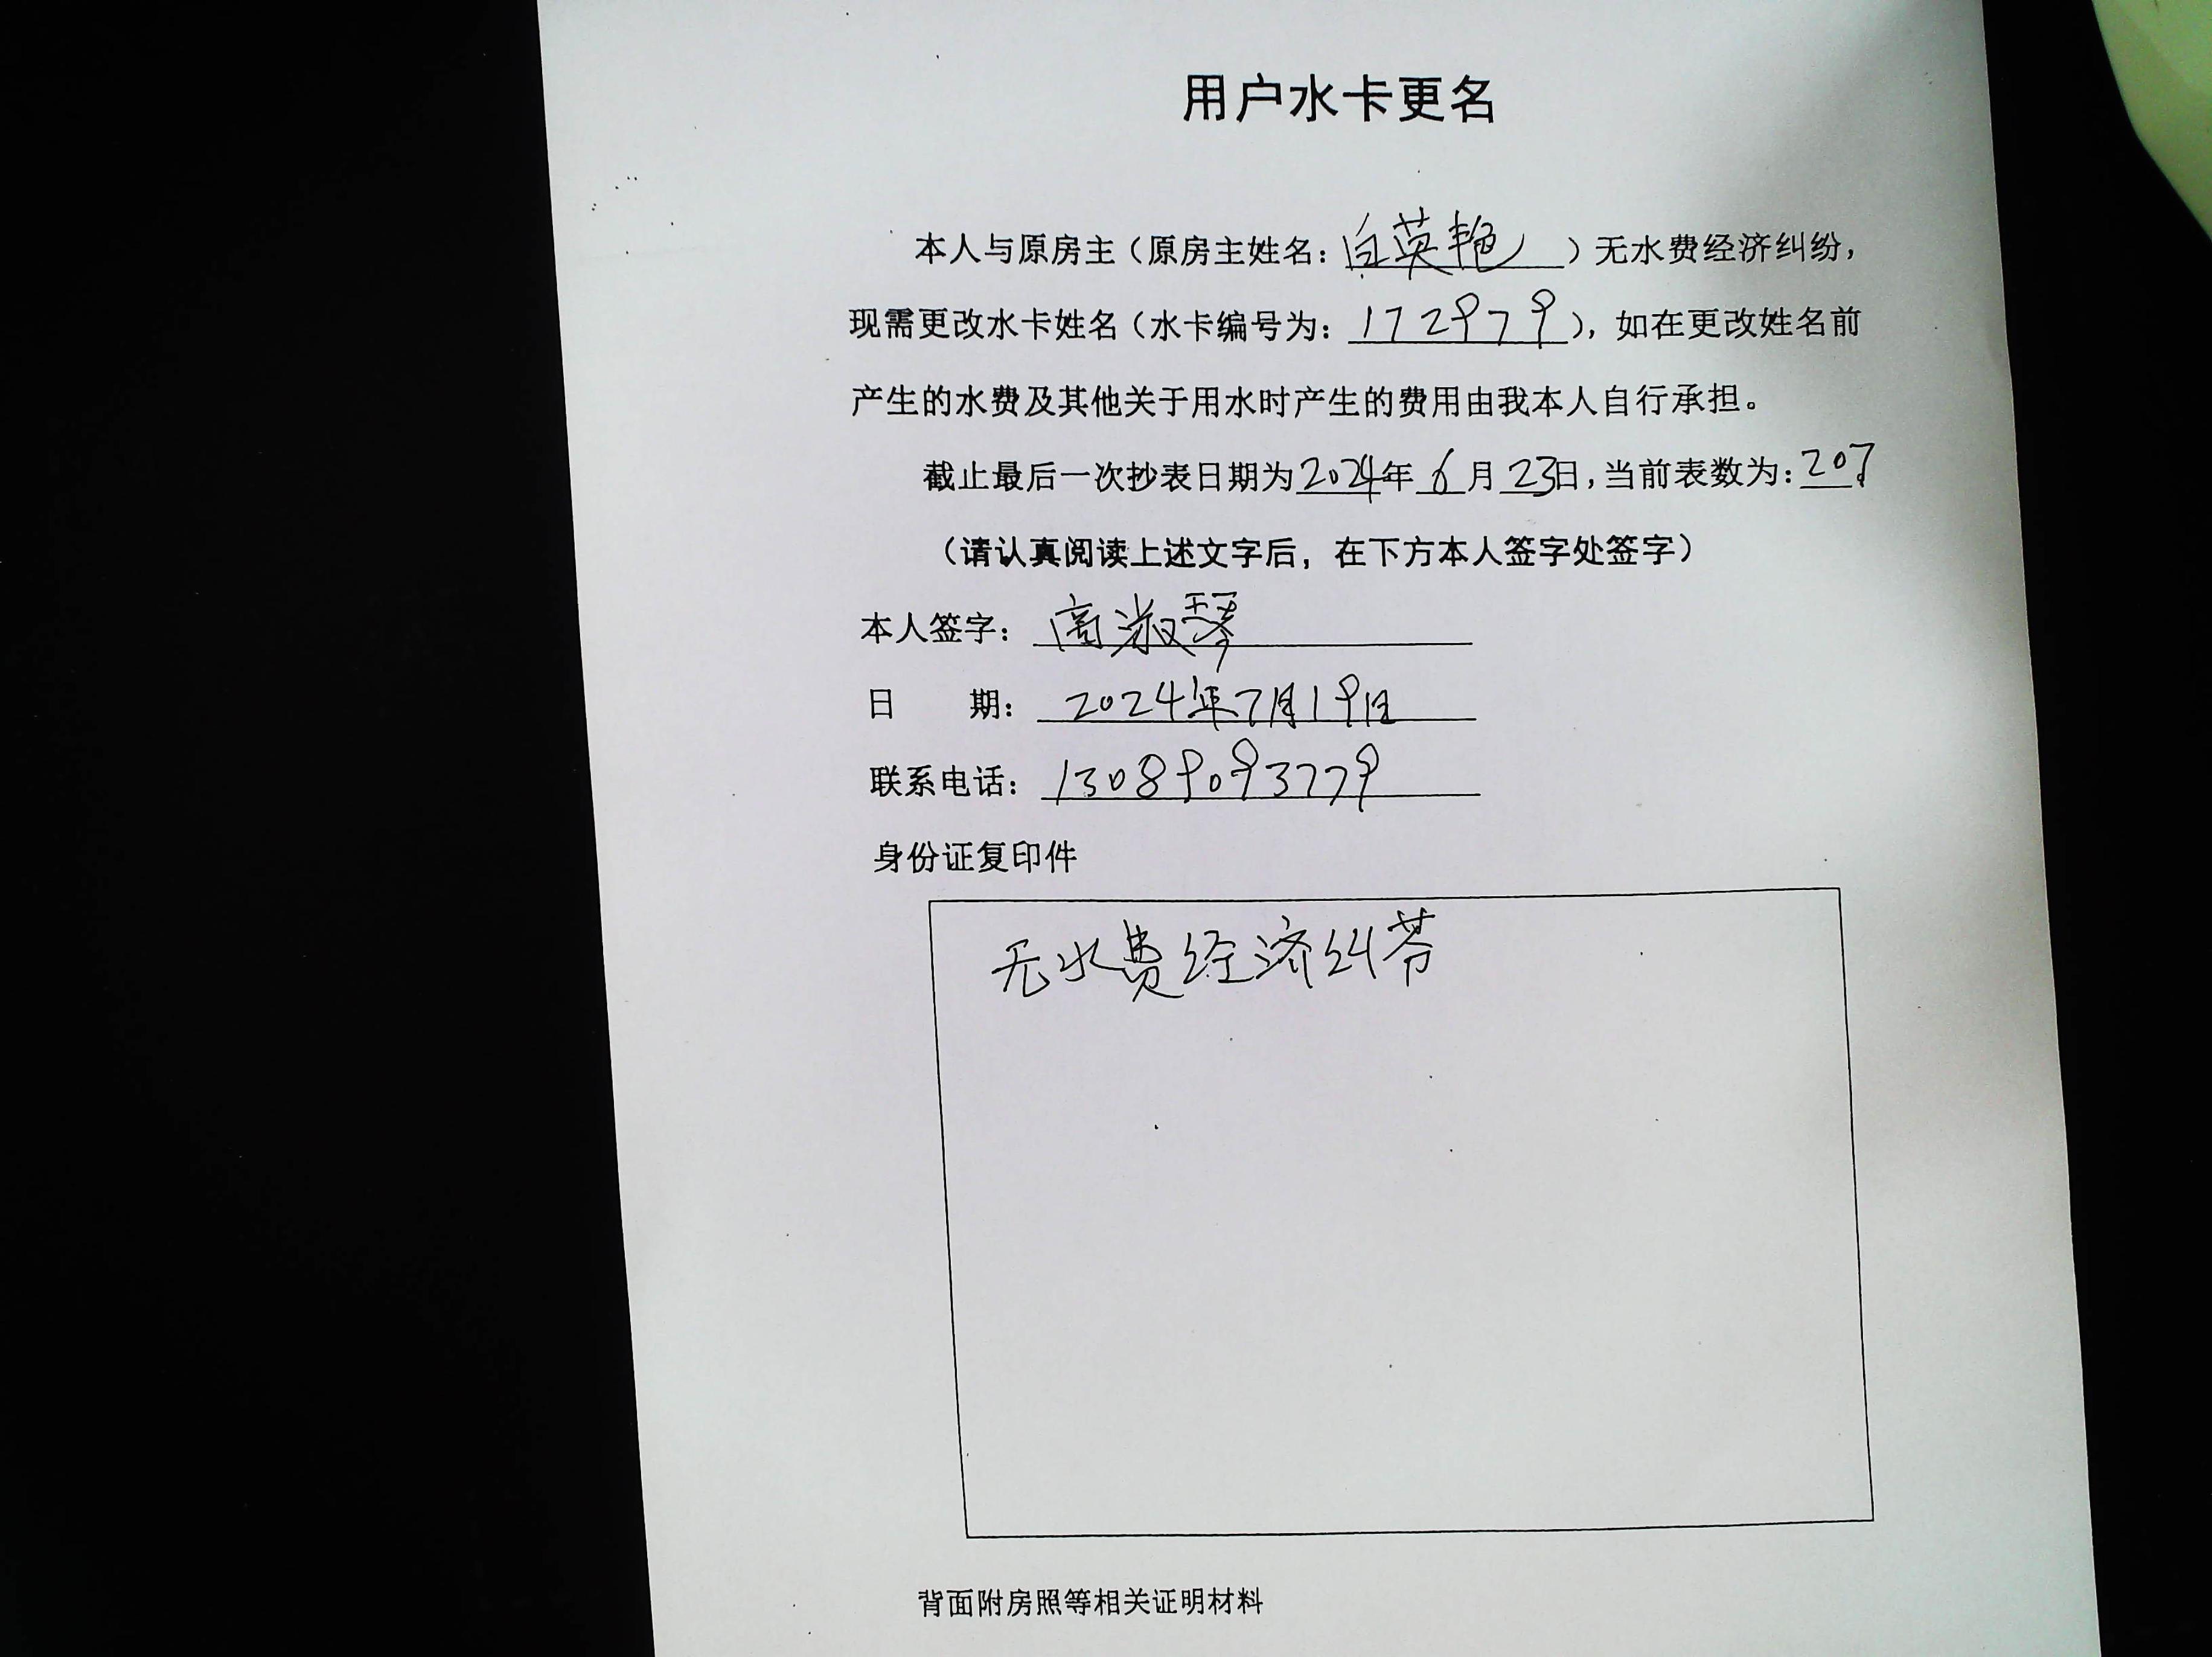 用户水卡更名
本人与原房主（原房主姓名：白英艳）无水费经济纠纷，
现需更改水卡姓名（水卡编号为：172979），如在更改姓名前
产生的水费及其他关于用水时产生的费用由我本人自行承担。
截止最后一次抄表日期为2024年6月23日，当前表数为：207
（请认真阅读上述文字后，在下方本人签字处签字）
本人签字：高淑琴
日 期：2024年7月19日
联系电话：13089093779
身份证复印件
无水费经济纠芬
背面附房照等相关证明材料